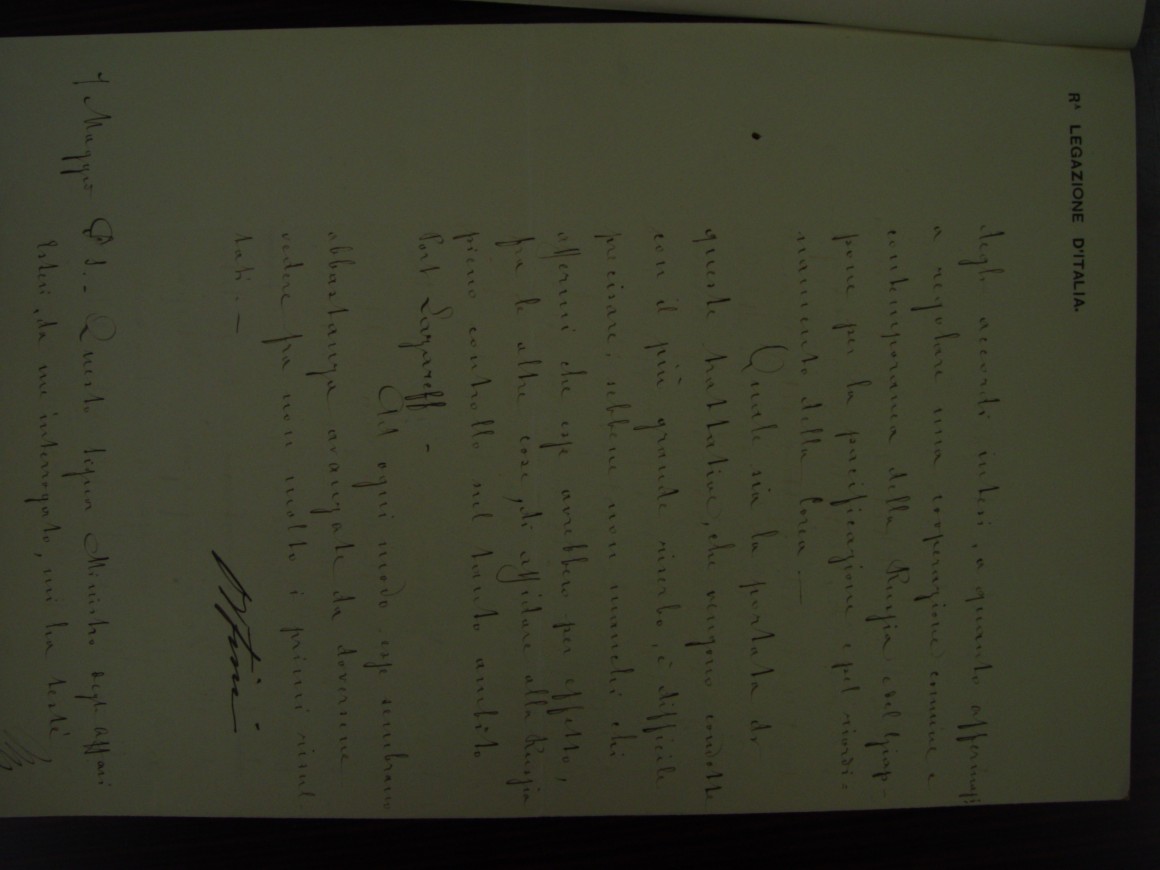 Rᴬ LEGAZIONE D'ITALIA.
degli accordi intesi, a quanto affermasi
a regolare una cooperazione comune e
contemporanea della Russia e del Giap-
pone per la pacificazione e pel riordi=
namento della Corea. —
Quale sia la portata di
queste trattative, che vengono condotte
con il più grande riserbo, è difficile
precisare; sebbene non manchi chi
affermi che esse avrebbero per effetto,
fra le altre cose, di affidare alla Russia
pieno controllo nel tanto ambito
Port Lazareff. -
Ad ogni modo, esse sembrano
abbastanza avanzate da doversene
vedere fra non molto i primi risul-
tati. —
Orfini
7 Maggio P.S. - Questo Signor Ministro degli affari
Esteri, da me interrogato, mi ha testè